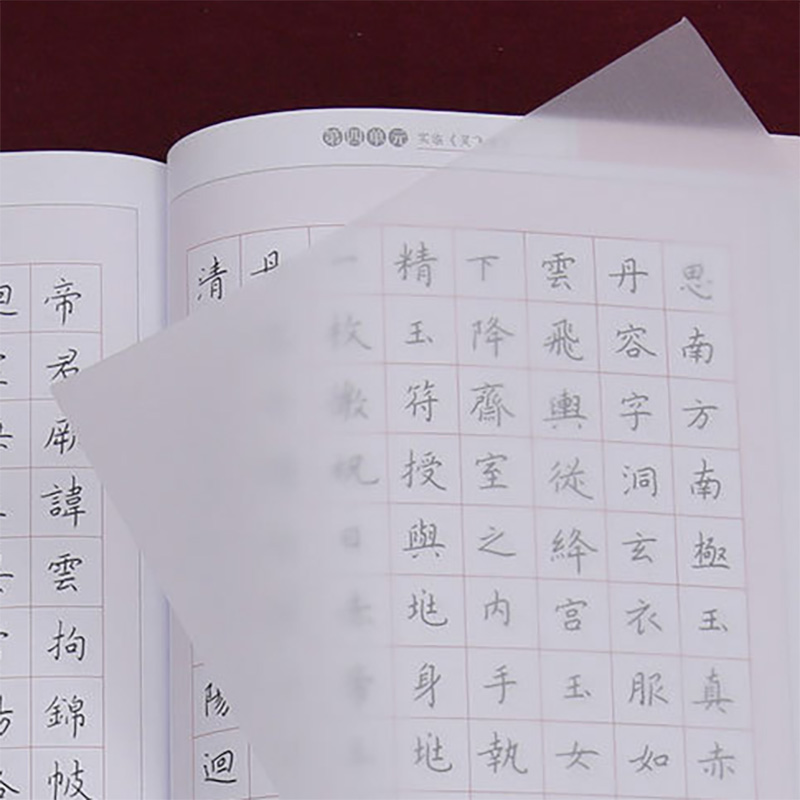 第四单元 实临《灵
思南方南極玉真赤
丹容字洞玄衣服如
雲飛輿從絳宫玉女
下降齋室之内手執
精玉符授與兆身兆
一枚微祝曰
丹
清陽迴
帝君諱雲拘錦帔